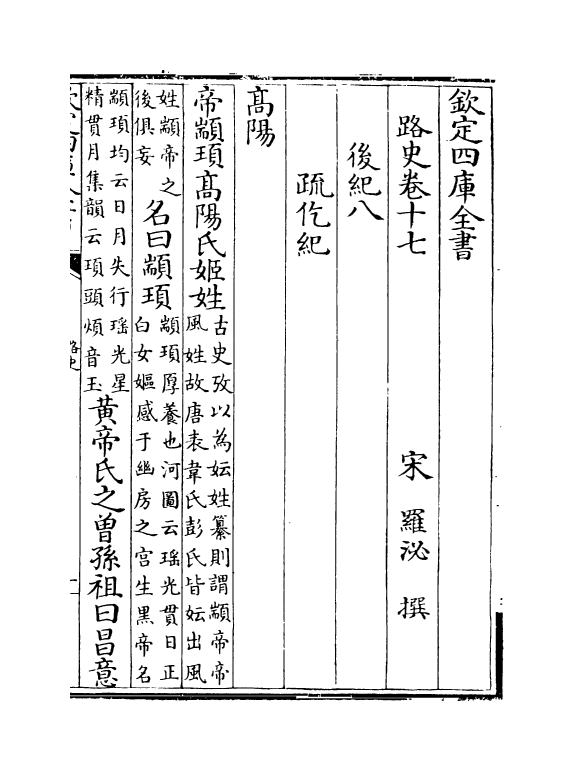 欽定四庫全書
路史卷十七 宋 羅泌 撰
後紀八
疏仡紀
髙陽
帝顓頊髙陽氏姬姓古史攷以為妘姓纂則謂顓帝帝風姓故唐表韋氏彭氏皆妘出風
姓顓帝之後俱妄名曰顓頊顓頊厚養也河圖云瑶光貫日正白女嫗感于幽房之宫生黒帝名
顓頊均云日月失行瑶光星精貫月集韻云頊頭煩音玉黄帝氏之曾孫祖曰昌意
路史